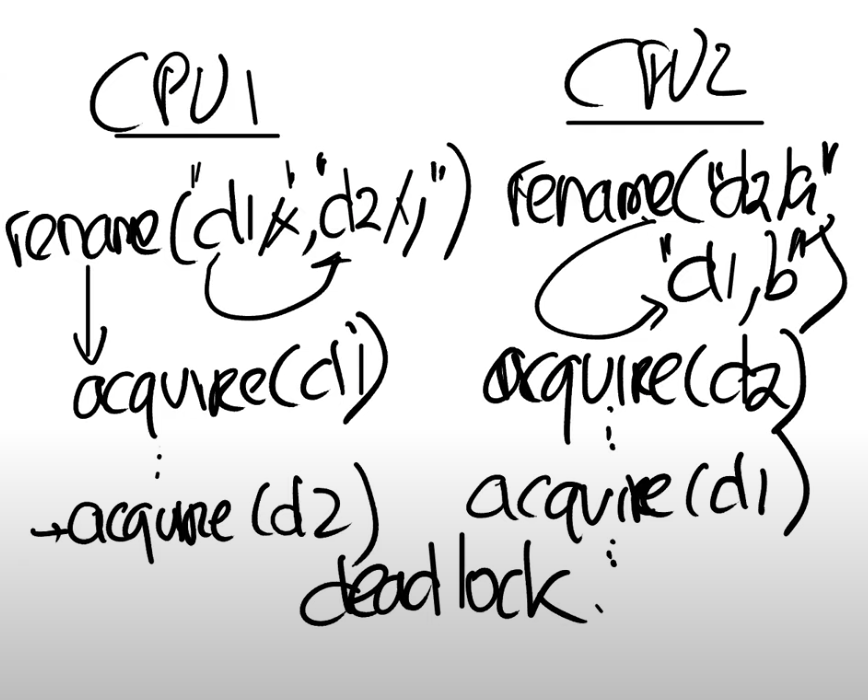 CPU1
rename("d1/x","d2/y")
acquire(d1)
acquire(d2)
CPU2
rename("d2/a"
"d1,b")
acquire(d2)
acquire(d1)
deadlock.